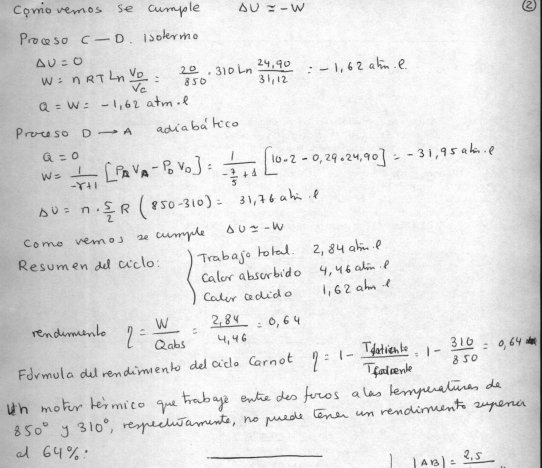 Como vemos se cumple ΔU ≃ -W
②
Proceso C — D. isotermo
ΔU = 0
W = n RT Ln V_D/V_C = 20/850 · 310 Ln 24,90/31,12 = -1,62 atm.l
Q = W = -1,62 atm.l
Proceso D → A adiabático
Q = 0
W = 1/(-γ+1) [P_A V_A - P_D V_D] = 1/(-7/5+1) [10·2 - 0,29·24,90] = -31,95 atm.l
ΔU = n · 5/2 R (850-310) = 31,76 atm.l
Como vemos se cumple ΔU ≃ -W
Resumen del ciclo: Trabajo total. 2,84 atm.l
Calor absorbido 4,46 atm.l
Calor cedido 1,62 atm.l
rendimiento η = W/Qabs = 2,84/4,46 = 0,64
Fórmula del rendimiento del ciclo Carnot η = 1 - / = 1 - 310/850 = 0,64
Un motor térmico que trabaje entre dos focos a las temperaturas de
850° y 310°, respectivamente, no puede tener un rendimiento superior
al 64%.
|AB| = 2,5